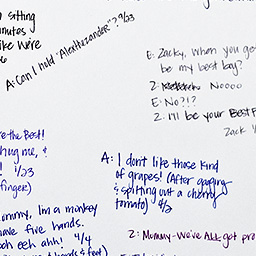 sitting
nutes
ike We're
A: Can I hold "Alexthezander"? 9/23
E: Zacky, when you ge
be my best boy?
Z: Noooo
E: No?!?
Z: I'll be your Best F
Zack
e the Best!
hug me, &
! 1/23
finger)
A: I don't like those kind
of grapes! (After gagging
& spitting out a cherry
tomato) 4/2
ommy, I'm a monkey
ave five hands.
ooh eeh ahh! 4/4
hands & feet)
Z: Mommy-We've ALL got pro